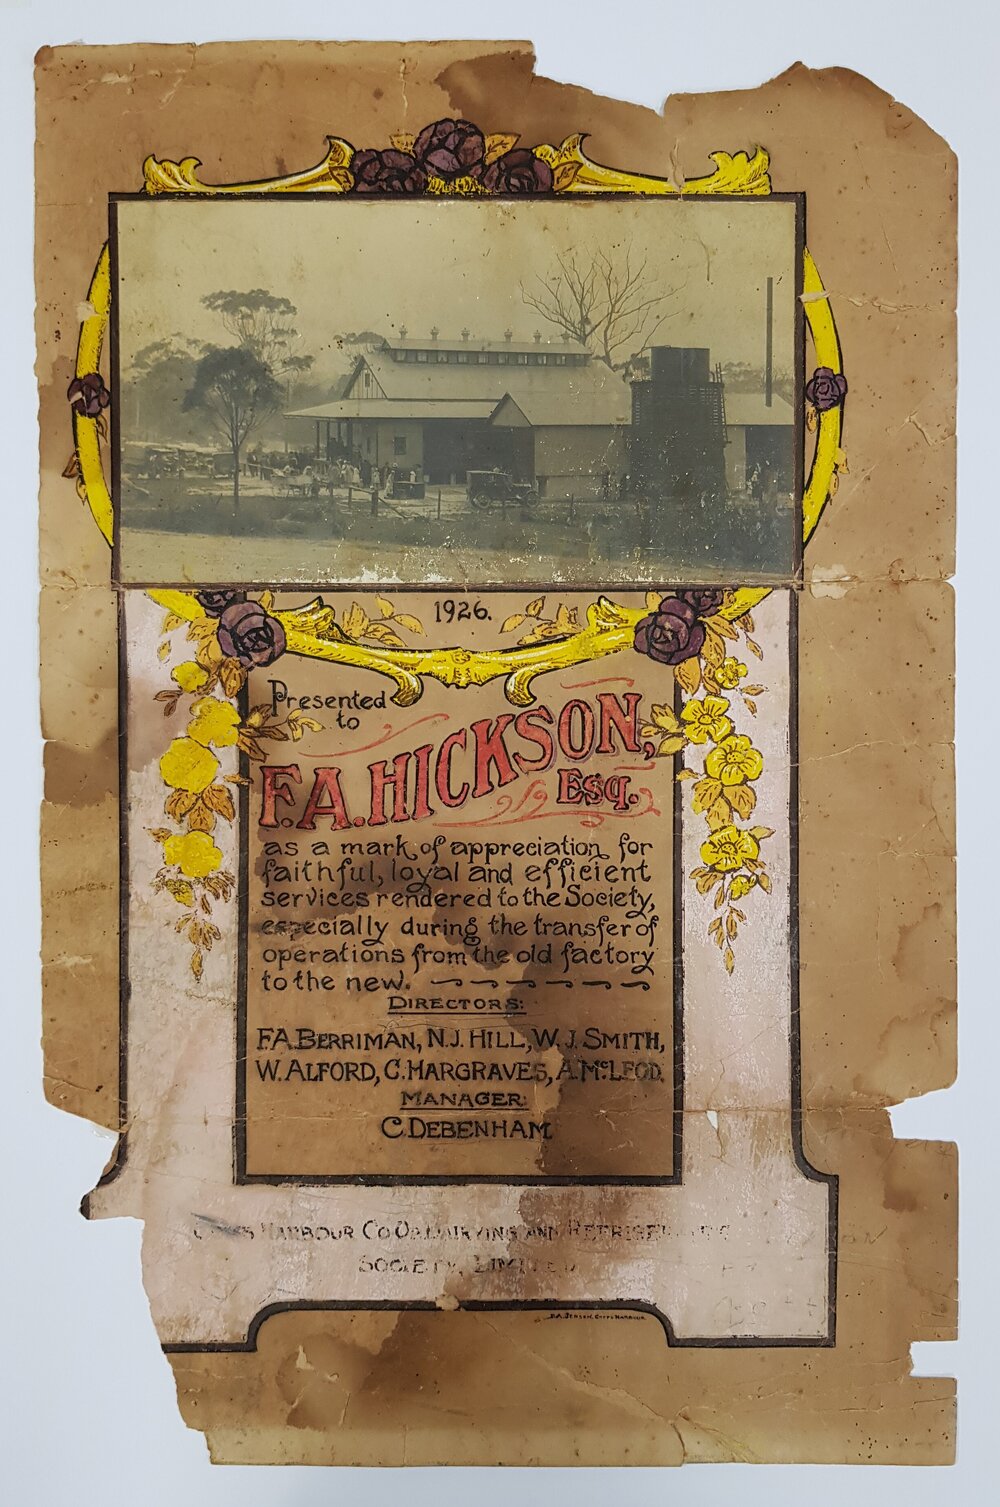 1926.
Presented
to
F.A. HICKSON,
Esq.
as a mark of appreciation for
faithful, loyal and efficient
services rendered to the Society,
especially during the transfer of
operations from the old factory
to the new.
DIRECTORS:
F.A. BERRIMAN, N.J. HILL, W.J. SMITH,
W. ALFORD, C. HARGRAVES, A. McLEOD.
MANAGER:
C. DEBENHAM
HARBOUR CO OP. DAIRYING AND
SOCIETY, LIMITED
COFFS HARBOUR